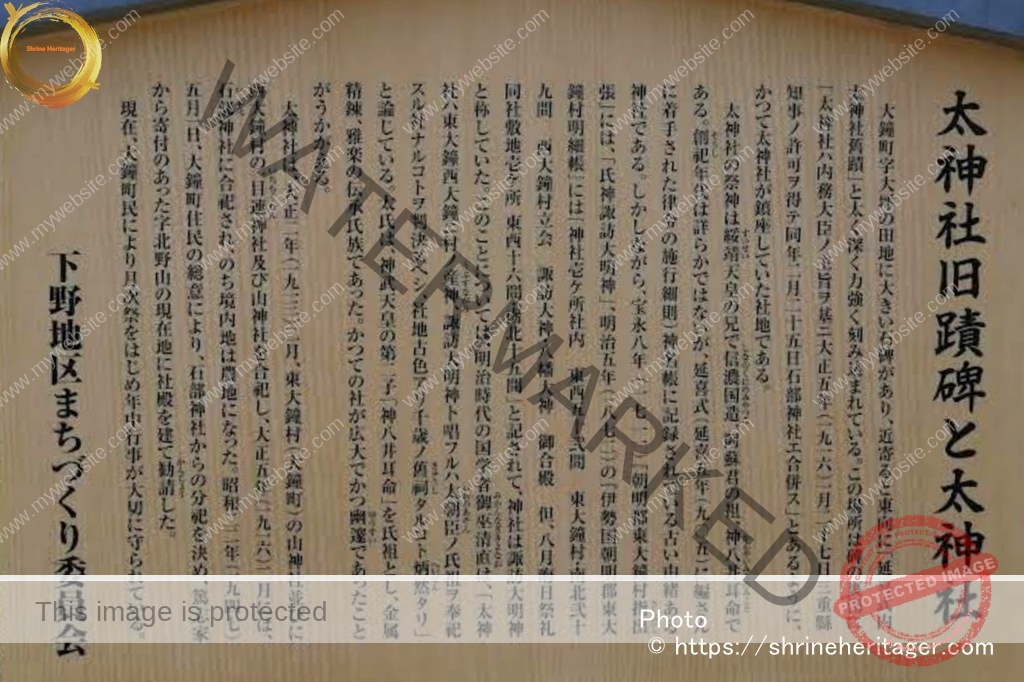 太神社旧蹟碑と太神社
大鐘町字大塚の田地に大きい石碑があり、近寄ると東側に「延喜式内
太神社舊蹟」と太く深く力強く刻み込まれている。この場所は
「太神社ハ内務大臣ノ 旨ヲ基ニ大正五年(一九一六)二月二十七日三重縣
知事ノ許可ヲ得テ同年二月二十五日石部神社エ合併ス」とあるように、
かつて太神社が鎮座していた社地である。
太神社の祭神は綏靖天皇の兄で信濃国造、阿蘇君の祖、神八井耳命で
ある。創祀年代は詳らかではないが、延喜式(延喜五年・九〇五)に編さ
に着手された律令の施行細則)神名帳に記録されている古い由緒ある
神社である。しかしながら、宝永八年(一七一一)「朝明郡東大鐘村
張」には、「氏神諏訪大明神」、明治五年(一八七二)の「伊勢国朝明郡東大
鐘村明細帳」には「神社壱ケ所社内 東西五十弐間 東大鐘村・南北弐十
九間 西大鐘村立会 諏訪大神 八幡大神 御合殿 但、八月 日祭礼
同社敷地壱ケ所 東西十六間 南北十九間」と記されて、神社は諏訪大明神
と称していた。このことについては、明治時代の国学者御巫清直は、「太神
社ハ東大鐘西大鐘 村ノ産神、諏訪大明神ト唱フルハ太朝臣ノ氏神ヲ奉祀
スル社ナルコトヲ 決スベシ社地古色アリ千歳ノ舊祠タルコト炳然タリ」
と論じている。太氏は、神武天皇の第二子「神八井耳命」を氏祖とし、金属
精錬、雅楽の伝承氏族であった。かつての社が広大でかつ幽邃であったこと
がうかがえる。
太神社は、大正二年(一九一三)二月、東大鐘村(大鐘町)の山神社並に
西大鐘村の日速神社及び山神社を合祀し、大正五年(一九一六)二月には、
石部神社に合祀され、のち境内地は農地になった。昭和二十二年(一九四七)
五月一日、大鐘町住民の総意により、石部神社からの分祀を決め、篤志家
から寄付のあった字北野山の現在地に社殿を建て勧請した。
現在、大鐘町民により月次祭をはじめ年中行事が大切に守られている。
下野地区まちづくり委員会
Shrine Heritager
WATERMARKED
www.mywebsite.com
This image is protected
Photo
© https://shrineheritager.com